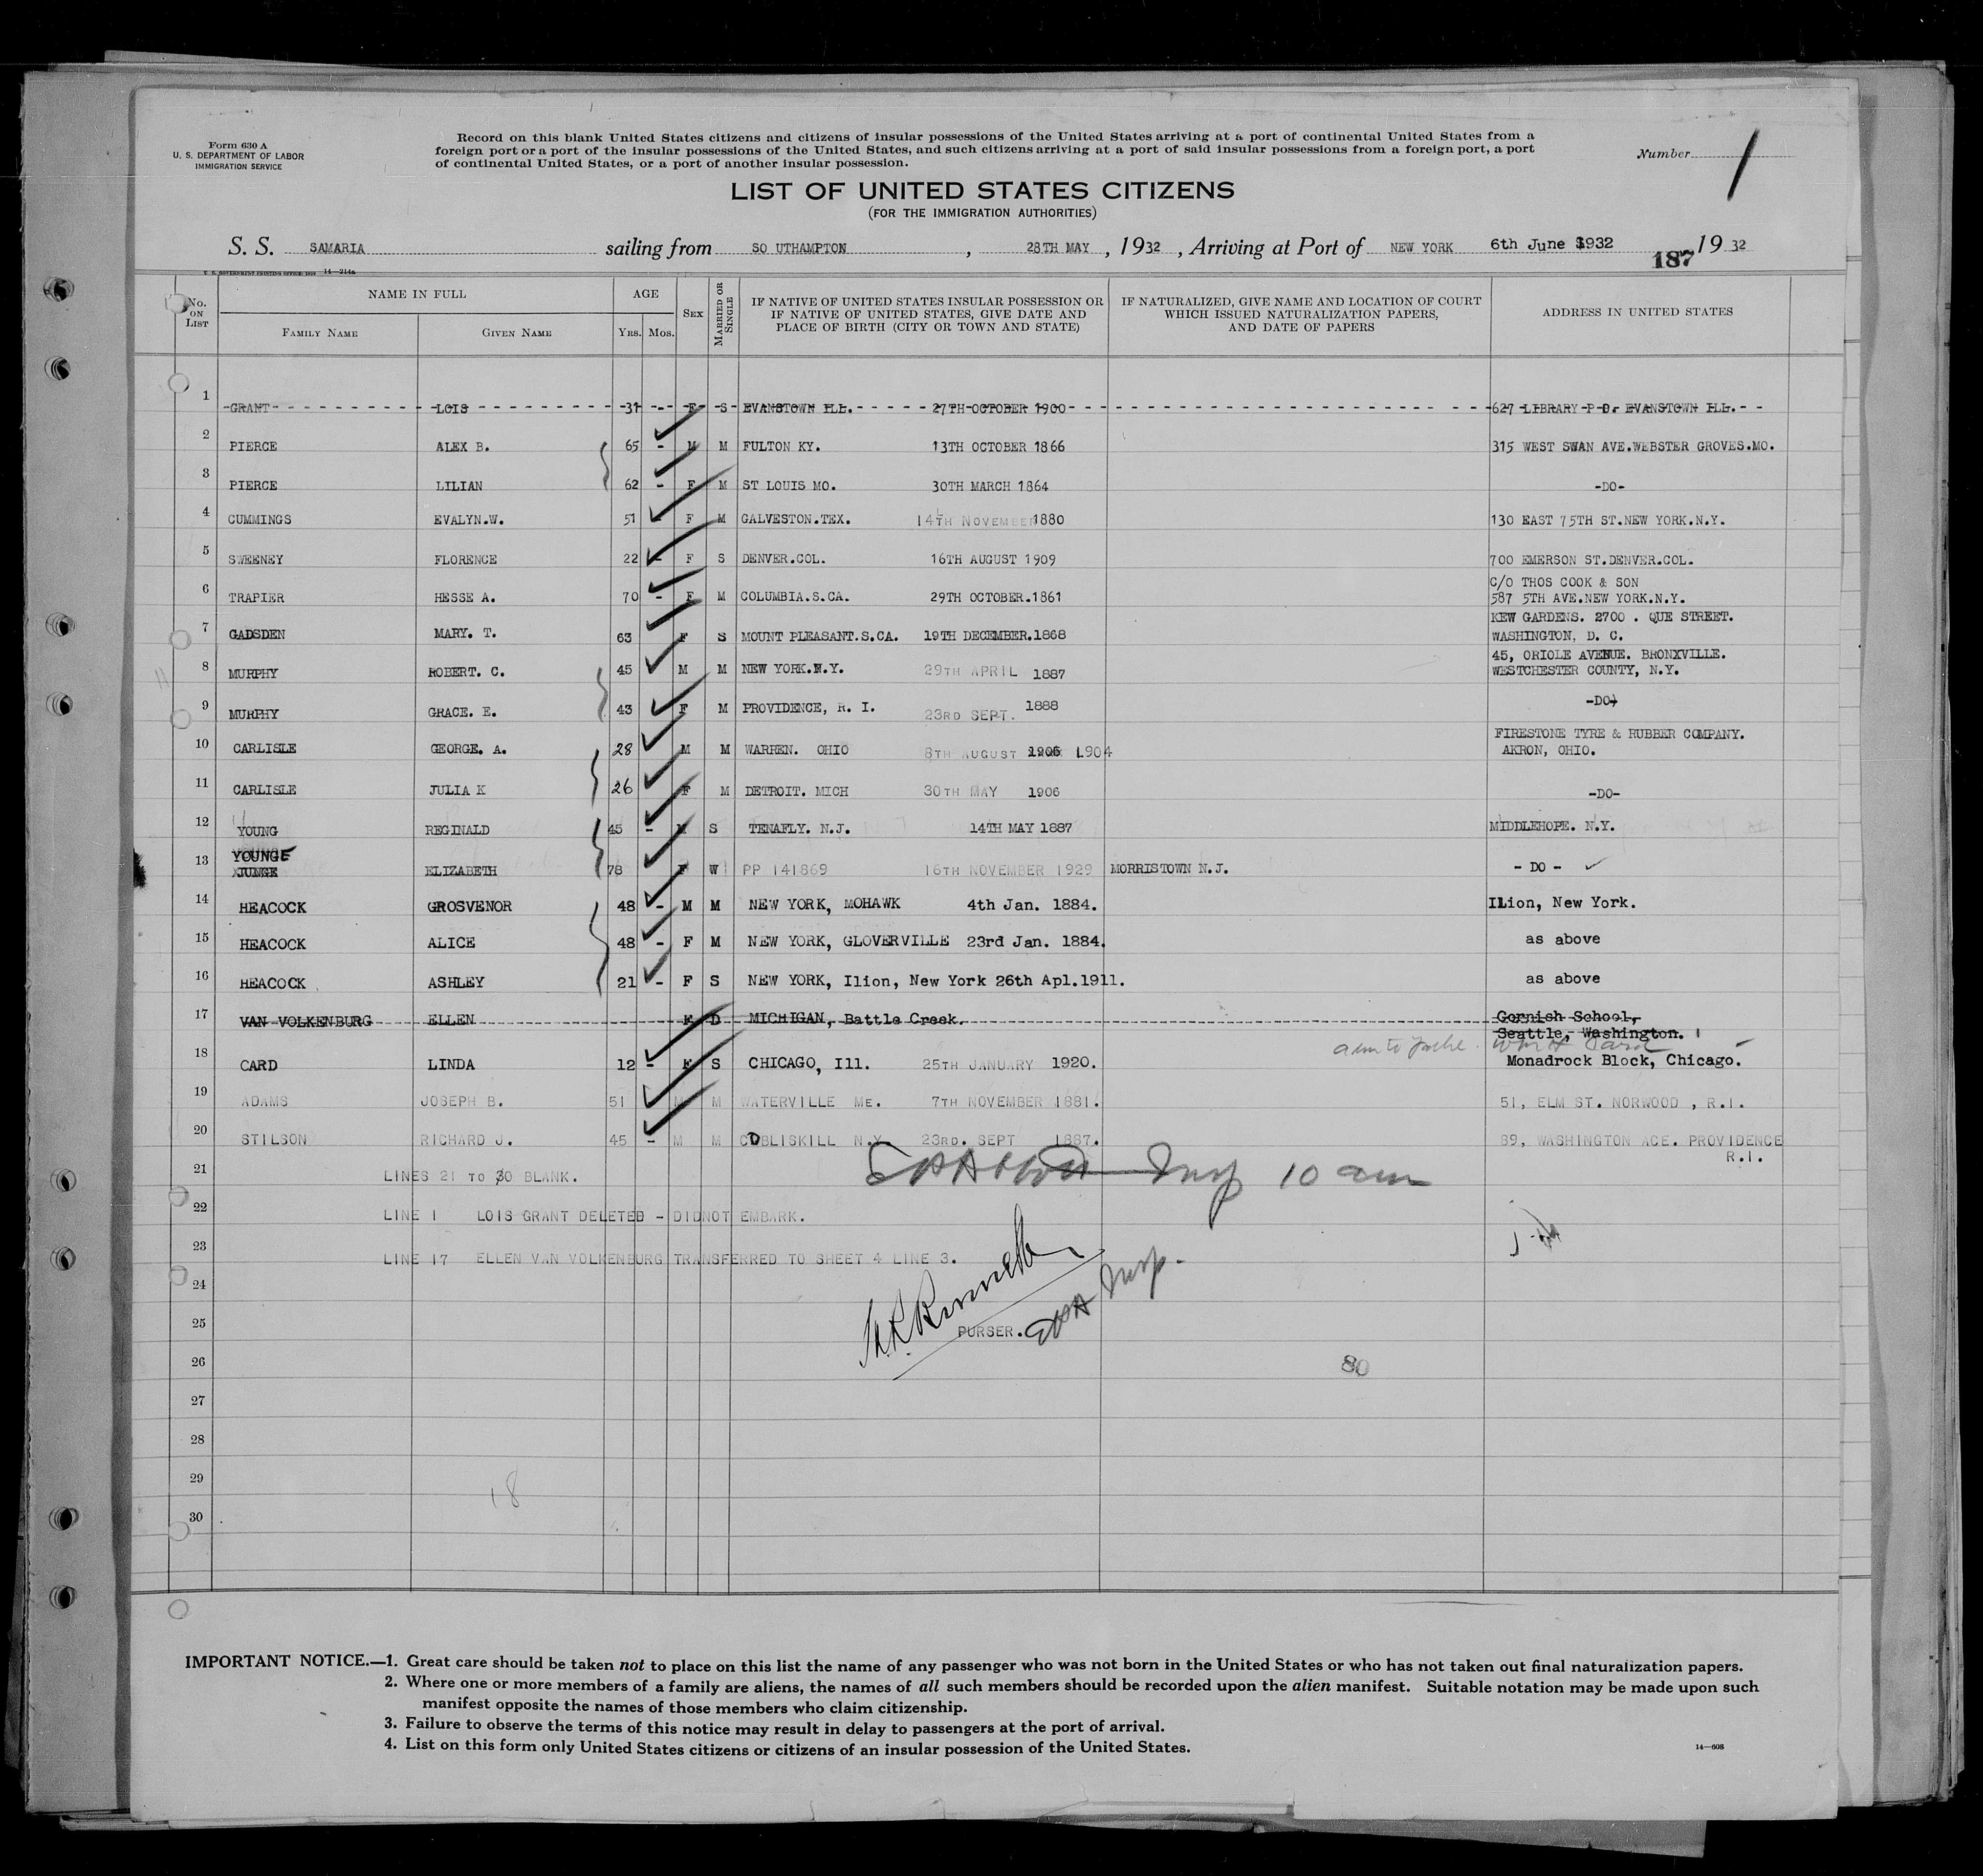 Form 630 A
U. S. DEPARTMENT OF LABOR
IMMIGRATION SERVICE
Record on this blank United States citizens and citizens of insular possessions of the United States arriving at a port of continental United States from a
foreign port or a port of the insular possessions of the United States, and such citizens arriving at a port of said insular possessions from a foreign port, a port
of continental United States, or a port of another insular possession.
Number 1
LIST OF UNITED STATES CITIZENS
(FOR THE IMMIGRATION AUTHORITIES)
S. S. SAMARIA sailing from SO UTHAMPTON , 28TH MAY , 1932 , Arriving at Port of NEW YORK 6th June 1932 187 19 32
U. S. GOVERNMENT PRINTING OFFICE: 1929 14—214a
No. ON LIST
NAME IN FULL
FAMILY NAME
GIVEN NAME
AGE
YRS. MOS.
SEX
MARRIED OR SINGLE
IF NATIVE OF UNITED STATES INSULAR POSSESSION OR
IF NATIVE OF UNITED STATES, GIVE DATE AND
PLACE OF BIRTH (CITY OR TOWN AND STATE)
IF NATURALIZED, GIVE NAME AND LOCATION OF COURT
WHICH ISSUED NATURALIZATION PAPERS,
AND DATE OF PAPERS
ADDRESS IN UNITED STATES
1 GRANT LOIS 31 - F S EVANSTOWN ILL. 27TH OCTOBER 1900 627 LIBRARY P D. EVANSTOWN ILL.
2 PIERCE ALEX B. 65 - M M FULTON KY. 13TH OCTOBER 1866 315 WEST SWAN AVE.WEBSTER GROVES.MO.
3 PIERCE LILIAN 62 - F M ST LOUIS MO. 30TH MARCH 1864 -DO-
4 CUMMINGS EVALYN.W. 51 - F M GALVESTON.TEX. 14TH NOVEMBER 1880 130 EAST 75TH ST.NEW YORK.N.Y.
5 SWEENEY FLORENCE 22 - F S DENVER.COL. 16TH AUGUST 1909 700 EMERSON ST.DENVER.COL.
6 TRAPIER HESSE A. 70 - F M COLUMBIA.S.CA. 29TH OCTOBER.1861 C/O THOS COOK & SON
587 5TH AVE.NEW YORK.N.Y.
7 GADSDEN MARY. T. 63 F S MOUNT PLEASANT.S.CA. 19TH DECEMBER.1868 KEW GARDENS. 2700 . QUE STREET.
WASHINGTON, D. C.
8 MURPHY ROBERT. C. 45 M M NEW YORK.N.Y. 29TH APRIL 1887 45, ORIOLE AVENUE. BRONXVILLE.
WESTCHESTER COUNTY, N.Y.
9 MURPHY GRACE. E. 43 F M PROVIDENCE, R. I. 23RD SEPT. 1888 -DO-
10 CARLISLE GEORGE. A. 28 M M WARREN. OHIO 8TH AUGUST 1906 1904 FIRESTONE TYRE & RUBBER COMPANY.
AKRON, OHIO.
11 CARLISLE JULIA K 26 F M DETROIT. MICH 30TH MAY 1906 -DO-
12 YOUNG REGINALD 45 - M S TENAFLY. N.J. 14TH MAY 1887 MIDDLEHOPE. N.Y.
YOUNGE
13 JUNGE ELIZABETH 78 F W PP 141869 16TH NOVEMBER 1929 MORRISTOWN N.J. - DO -
14 HEACOCK GROSVENOR 48 - M M NEW YORK, MOHAWK 4th Jan. 1884. ILion, New York.
15 HEACOCK ALICE 48 - F M NEW YORK, GLOVERVILLE 23rd Jan. 1884. as above
16 HEACOCK ASHLEY 21 - F S NEW YORK, Ilion, New York 26th Apl.1911. as above
17 VAN VOLKENBURG ELLEN F D MICHIGAN, Battle Creek. Cornish School,
Seattle, Washington.
18 CARD LINDA 12 - F S CHICAGO, Ill. 25TH JANUARY 1920. Monadrock Block, Chicago.
19 ADAMS JOSEPH B. 51 M M WATERVILLE ME. 7TH NOVEMBER 1881. 51, ELM ST. NORWOOD , R.I.
20 STILSON RICHARD J. 45 - M M COBLISKILL N.Y 23RD. SEPT 1887. 89, WASHINGTON ACE. PROVIDENCE
R.I.
21 LINES 21 TO 30 BLANK. Insp 10 am
22 LINE 1 LOIS GRANT DELETED - DIDNOT EMBARK.
23 LINE 17 ELLEN VAN VOLKENBURG TRANSFERRED TO SHEET 4 LINE 3.
24
25 PURSER. Insp.
26 80
27
28
29 18
30
IMPORTANT NOTICE.—1. Great care should be taken not to place on this list the name of any passenger who was not born in the United States or who has not taken out final naturalization papers.
2. Where one or more members of a family are aliens, the names of all such members should be recorded upon the alien manifest. Suitable notation may be made upon such
manifest opposite the names of those members who claim citizenship.
3. Failure to observe the terms of this notice may result in delay to passengers at the port of arrival.
4. List on this form only United States citizens or citizens of an insular possession of the United States.
14—608